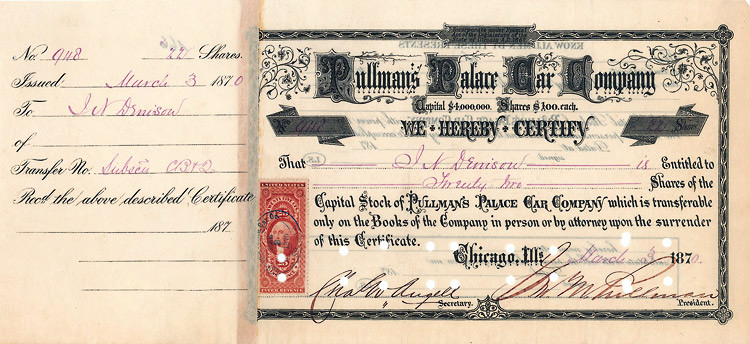 No. 948 22 Shares.
Issued March 3 1870
To J N Denison
of
Transfer No.
Rec'd the above described Certificate
187
Pullman's Palace Car Company
Capital $4,000,000. Shares $100. each.
948
WE HEREBY CERTIFY
22
That J N Denison is Entitled to
Twenty two Shares of the
Capital Stock of PULLMAN'S PALACE CAR COMPANY which is transferable
only on the Books of the Company in person or by attorney upon the surrender
of this Certificate.
Chicago, Ill. March 3 1870.
Chas W Angell
Secretary.
President.
UNITED STATES
INTER. REVENUE